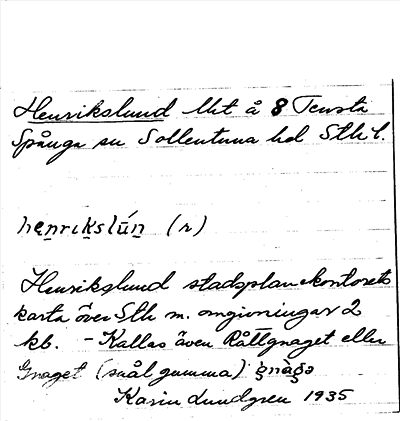 Henrikslund lht å 8 Tensta
Spånga sn Sollentuna hd Sth l.
henrikslún (r)
Henrikslund stadsplanekontorets
karta över Sth m. omgivningar 2
kb. – Kallas även Råttgnaget eller
Gnaget (snål gumma) gnàgə
Karin Lundgren 1935